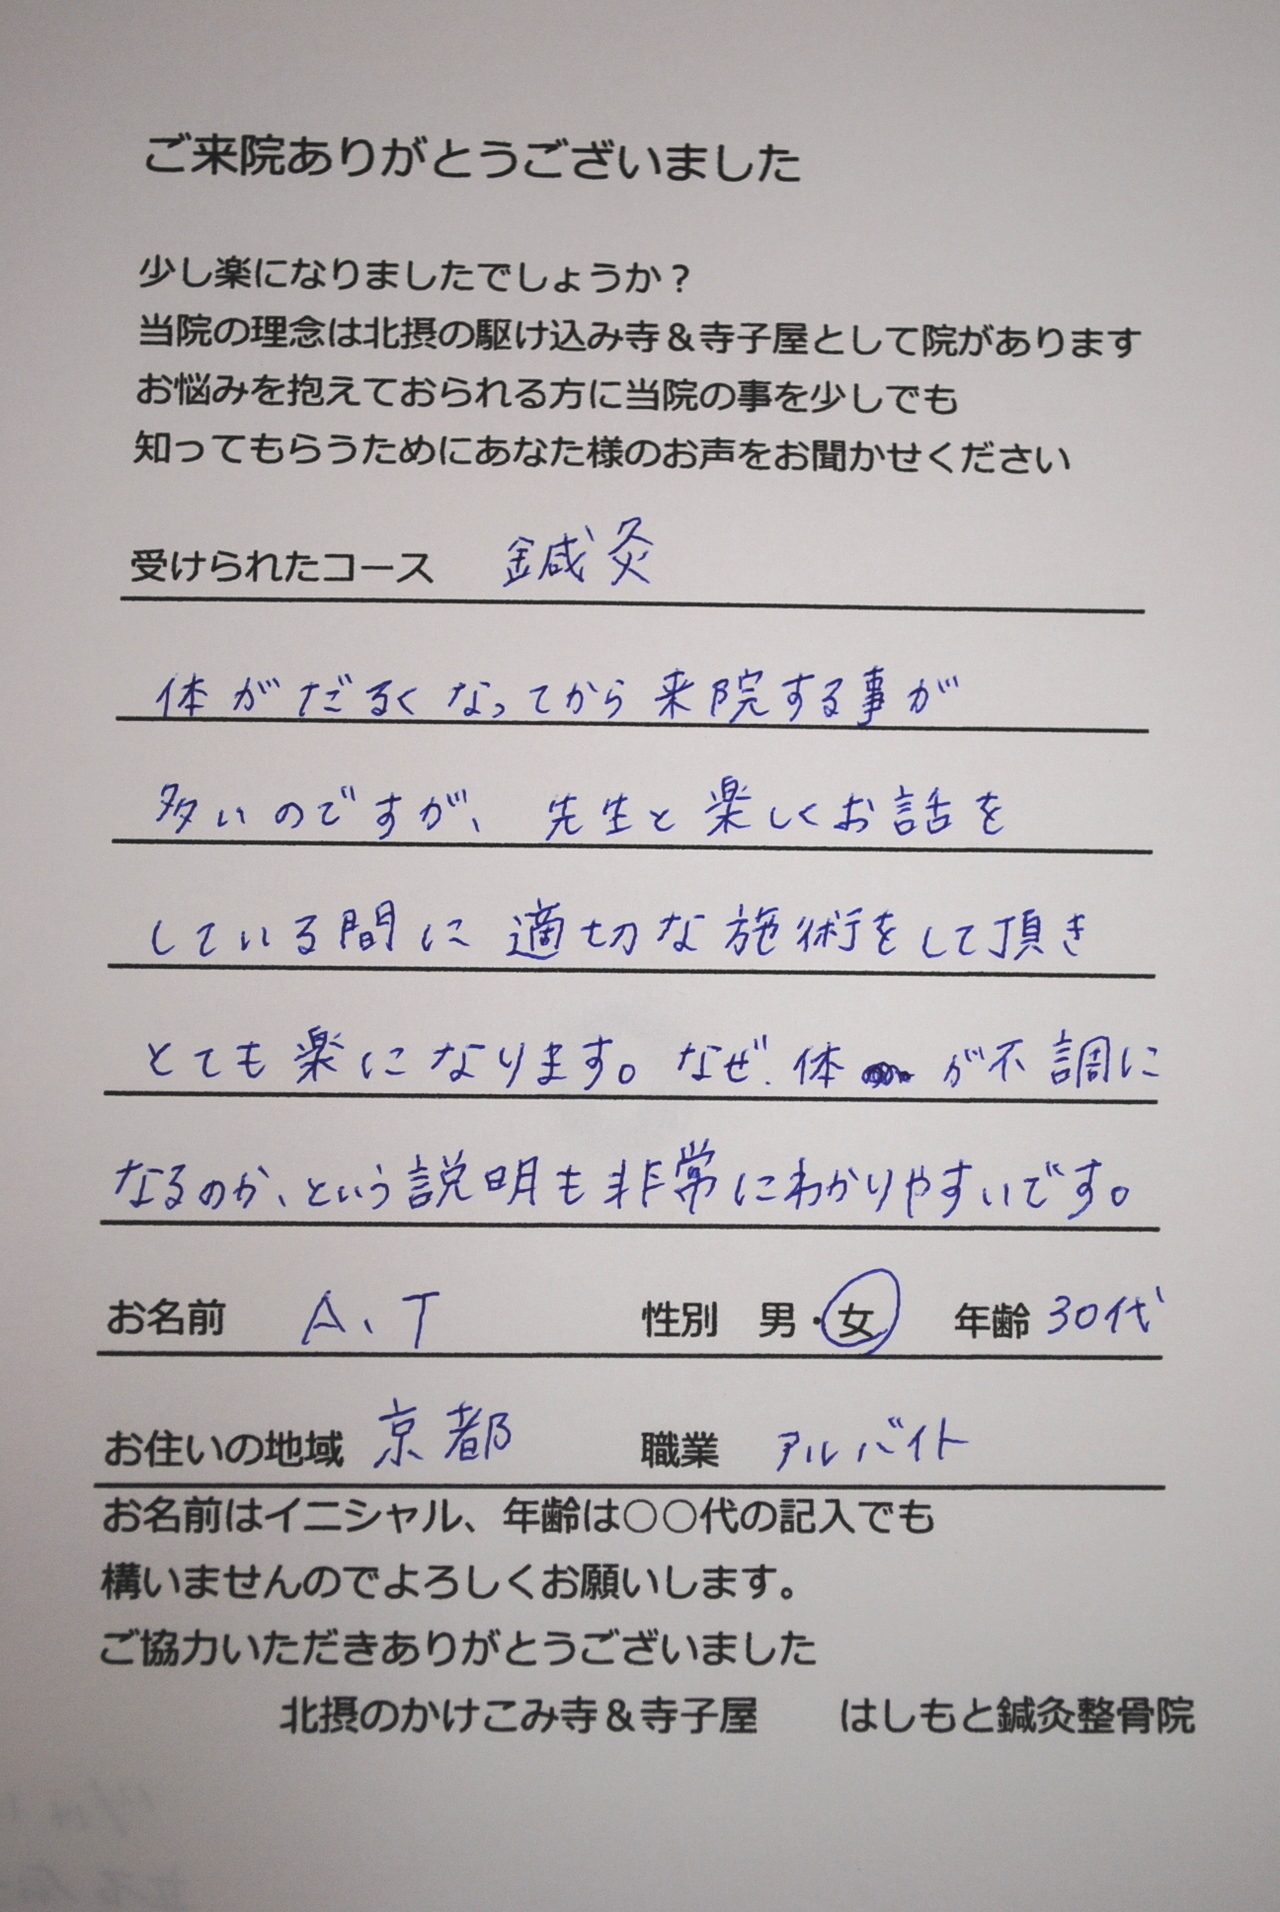 ご来院ありがとうございました
少し楽になりましたでしょうか？
当院の理念は北摂の駆け込み寺＆寺子屋として院があります
お悩みを抱えておられる方に当院の事を少しでも
知ってもらうためにあなた様のお声をお聞かせください
受けられたコース 鍼灸
体がだるくなってから来院する事が
多いのですが、先生と楽しくお話を
している間に適切な施術をして頂き
とても楽になります。なぜ、体が不調に
なるのか、という説明も非常にわかりやすいです。
お名前 A、T 性別 男・女 年齢 30代
お住いの地域 京都 職業 アルバイト
お名前はイニシャル、年齢は○○代の記入でも
構いませんのでよろしくお願いします。
ご協力いただきありがとうございました
北摂のかけこみ寺＆寺子屋 はしもと鍼灸整骨院